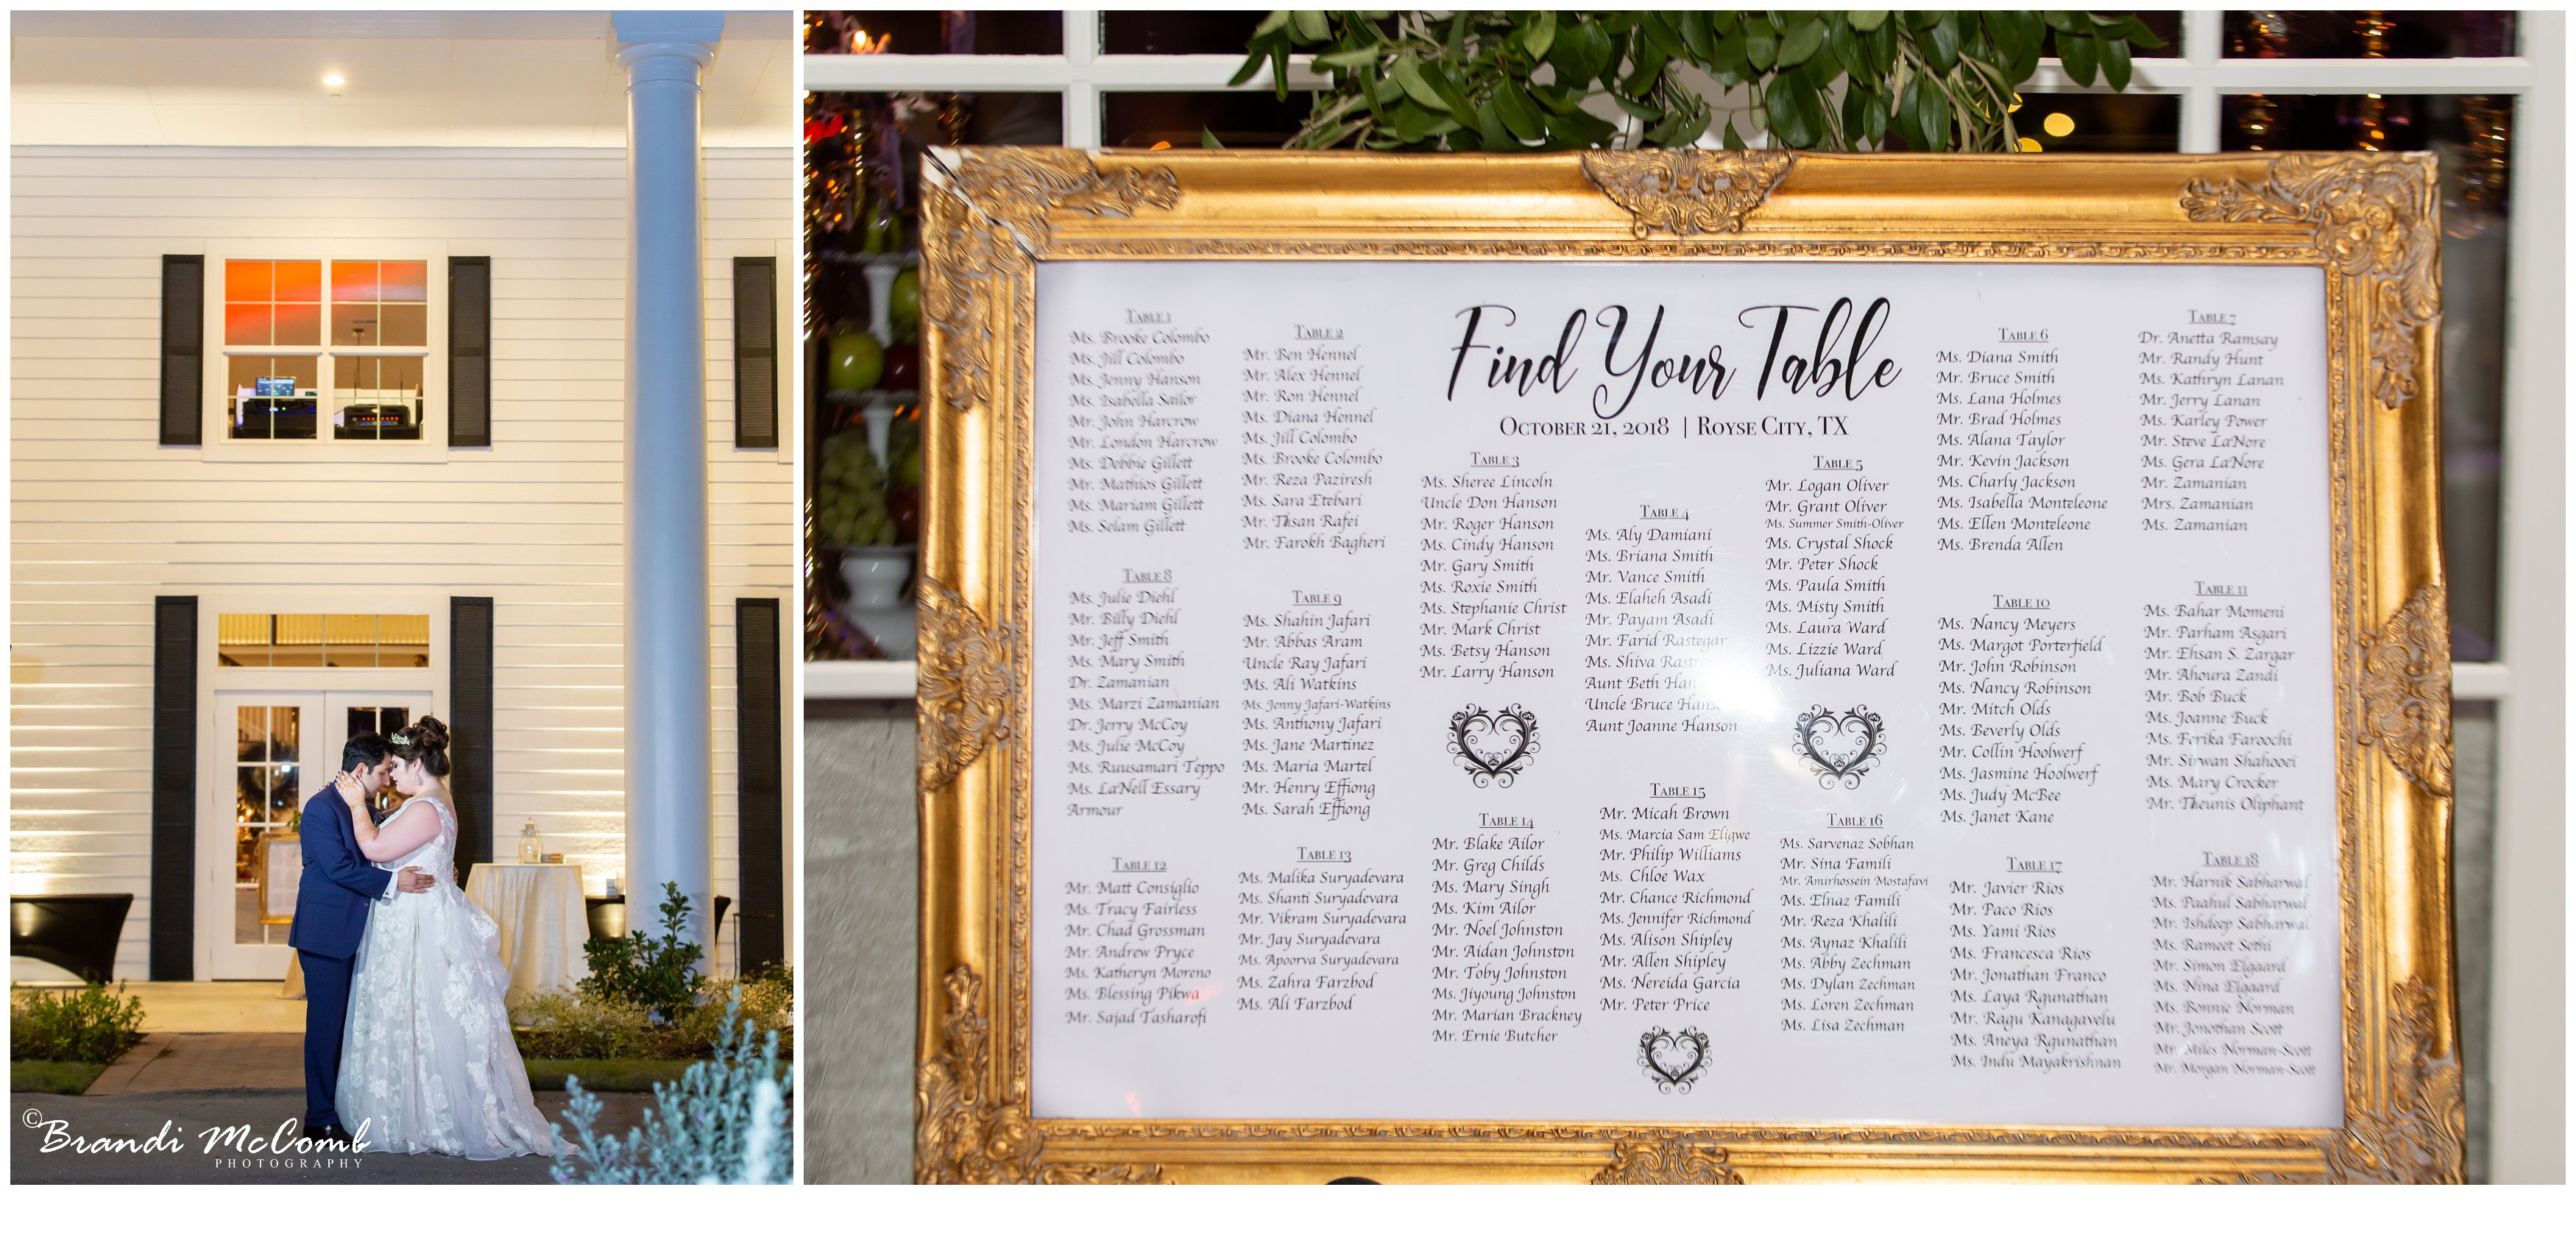 © Brandi McComb
PHOTOGRAPHY
Find Your Table
October 21, 2018 | Royse City, TX
Table 1
Ms. Brooke Colombo
Ms. Jill Colombo
Ms. Jenny Hanson
Ms. Isabella Sailor
Mr. John Harcrow
Mr. London Harcrow
Ms. Debbie Gillett
Mr. Mathios Gillett
Ms. Mariam Gillett
Ms. Selam Gillett
Table 2
Mr. Ben Hennel
Mr. Alex Hennel
Mr. Ron Hennel
Ms. Diana Hennel
Ms. Jill Colombo
Ms. Brooke Colombo
Mr. Reza Paziresh
Ms. Sara Etebari
Mr. Thsan Rafei
Mr. Farokh Bagheri
Table 3
Ms. Sheree Lincoln
Uncle Don Hanson
Mr. Roger Hanson
Ms. Cindy Hanson
Mr. Gary Smith
Ms. Roxie Smith
Ms. Stephanie Christ
Mr. Mark Christ
Ms. Betsy Hanson
Mr. Larry Hanson
Table 4
Ms. Aly Damiani
Ms. Briana Smith
Mr. Vance Smith
Ms. Elaheh Asadi
Mr. Payam Asadi
Mr. Farid Rastegar
Ms. Shiva
Aunt Beth
Uncle Bruce
Aunt Joanne Hanson
Table 5
Mr. Logan Oliver
Mr. Grant Oliver
Ms. Summer Smith-Oliver
Ms. Crystal Shock
Mr. Peter Shock
Ms. Paula Smith
Ms. Misty Smith
Ms. Laura Ward
Ms. Lizzie Ward
Ms. Juliana Ward
Table 6
Ms. Diana Smith
Mr. Bruce Smith
Ms. Lana Holmes
Mr. Brad Holmes
Ms. Alana Taylor
Mr. Kevin Jackson
Ms. Charly Jackson
Ms. Isabella Monteleone
Ms. Ellen Monteleone
Ms. Brenda Allen
Table 7
Dr. Anetta Ramsay
Mr. Randy Hunt
Ms. Kathryn Lanan
Mr. Jerry Lanan
Ms. Karley Power
Mr. Steve LaNore
Ms. Gera LaNore
Mr. Zamanian
Mrs. Zamanian
Ms. Zamanian
Table 8
Ms. Julie Diehl
Mr. Billy Diehl
Mr. Jeff Smith
Ms. Mary Smith
Dr. Zamanian
Ms. Marzi Zamanian
Dr. Jerry McCoy
Ms. Julie McCoy
Ms. Ruusamari Teppo
Ms. LaNell Essary
Armour
Table 9
Ms. Shahin Jafari
Mr. Abbas Aram
Uncle Ray Jafari
Ms. Ali Watkins
Ms. Jenny Jafari-Watkins
Ms. Anthony Jafari
Ms. Jane Martinez
Ms. Maria Martel
Mr. Henry Effiong
Ms. Sarah Effiong
Table 10
Ms. Nancy Meyers
Ms. Margot Porterfield
Mr. John Robinson
Ms. Nancy Robinson
Mr. Mitch Olds
Ms. Beverly Olds
Mr. Collin Hoolwerf
Ms. Jasmine Hoolwerf
Ms. Judy McBee
Ms. Janet Kane
Table 11
Ms. Bahar Momeni
Mr. Parham Asgari
Mr. Ehsan S. Zargar
Mr. Ahoura Zandi
Mr. Bob Buck
Ms. Joanne Buck
Ms. Ferika Faroochi
Mr. Sirwan Shahooei
Ms. Mary Crocker
Mr. Theunis Oliphant
Table 12
Mr. Matt Consiglio
Ms. Tracy Fairless
Mr. Chad Grossman
Mr. Andrew Pryce
Ms. Katheryn Moreno
Ms. Blessing Pikwa
Mr. Sajad Tasharofi
Table 13
Ms. Malika Suryadevara
Ms. Shanti Suryadevara
Mr. Vikram Suryadevara
Mr. Jay Suryadevara
Ms. Apoorva Suryadevara
Ms. Zahra Farzbod
Ms. Ali Farzbod
Table 14
Mr. Blake Ailor
Mr. Greg Childs
Ms. Mary Singh
Ms. Kim Ailor
Mr. Noel Johnston
Mr. Aidan Johnston
Mr. Toby Johnston
Ms. Jiyoung Johnston
Mr. Marian Brackney
Mr. Ernie Butcher
Table 15
Mr. Micah Brown
Ms. Marcia Sam Eligwe
Mr. Philip Williams
Ms. Chloe Wax
Mr. Chance Richmond
Ms. Jennifer Richmond
Ms. Alison Shipley
Mr. Allen Shipley
Ms. Nereida Garcia
Mr. Peter Price
Table 16
Ms. Sarvenaz Sobhan
Mr. Sina Famili
Mr. Amirhossein Mostafavi
Ms. Elnaz Famili
Mr. Reza Khalili
Ms. Aynaz Khalili
Ms. Abby Zechman
Ms. Dylan Zechman
Ms. Loren Zechman
Ms. Lisa Zechman
Table 17
Mr. Javier Rios
Mr. Paco Rios
Ms. Yami Rios
Ms. Francesca Rios
Mr. Jonathan Franco
Ms. Laya Rgunathan
Mr. Ragu Kanagavelu
Ms. Aneya Rgunathan
Ms. Indu Mayakrishnan
Table 18
Mr. Harnik Sabharwal
Ms. Paahul Sabharwal
Mr. Ishdeep Sabharwal
Ms. Rameet Sethi
Mr. Simon Elgaard
Ms. Nina Elgaard
Ms. Bonnie Norman
Mr. Jonothan Scott
Mr. Miles Norman-Scott
Mr. Morgan Norman-Scott